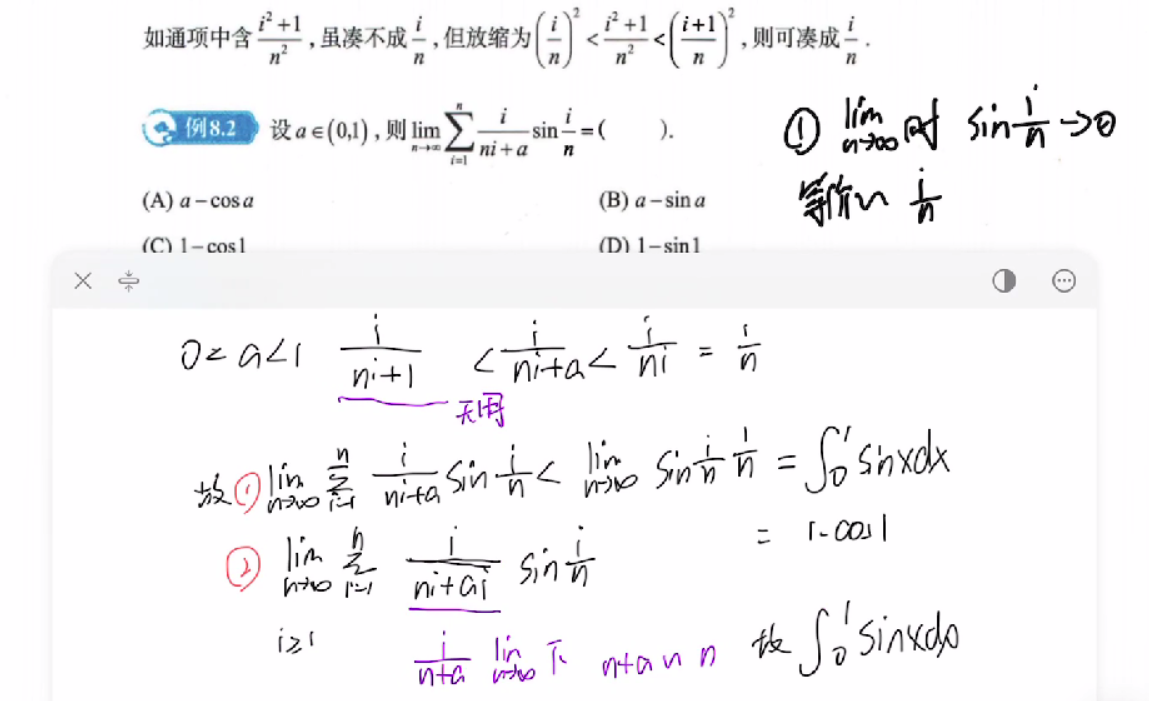 如通项中含 (i²+1)/n²，虽凑不成 i/n，但放缩为 (i/n)² < (i²+1)/n² < ((i+1)/n)²，则可凑成 i/n．
例8.2 设a∈(0,1)，则 lim_{n→∞} ∑_{i=1}^{n} i/(ni+a) sin i/n =( ).
① lim_{n→∞} 时 sin i/n →0
等价~ i/n
(A) a−cos a (B) a−sin a
(C) 1−cos1 (D) 1−sin1
0<a<1 i/(ni+1) < i/(ni+a) < i/(ni) = 1/n
无用
故① lim_{n→∞} ∑_{i=1}^{n} i/(ni+a) sin i/n < lim_{n→∞} sin i/n 1/n = ∫₀¹ sinxdx
= 1-cos1
② lim_{n→∞} ∑_{i=1}^{n} i/(ni+ai) sin i/n
i≥1
1/(n+a) lim_{n→∞} 下 n+a ~ n 故 ∫₀¹ sinxdx